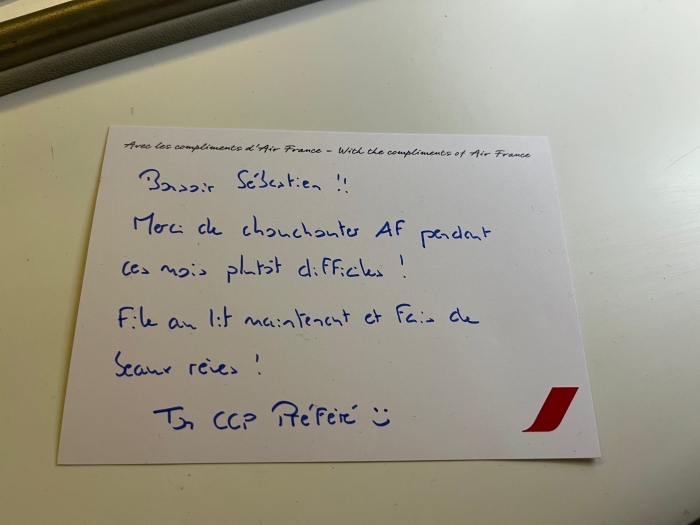 Avec les compliments d'Air France - With the compliments of Air France
Bonsoir Sébastien !!
Merci de chouchouter AF pendant
ces mois plutôt difficiles !
File au lit maintenant et fais de
beaux rêves !
Ton CCP Préféré :)